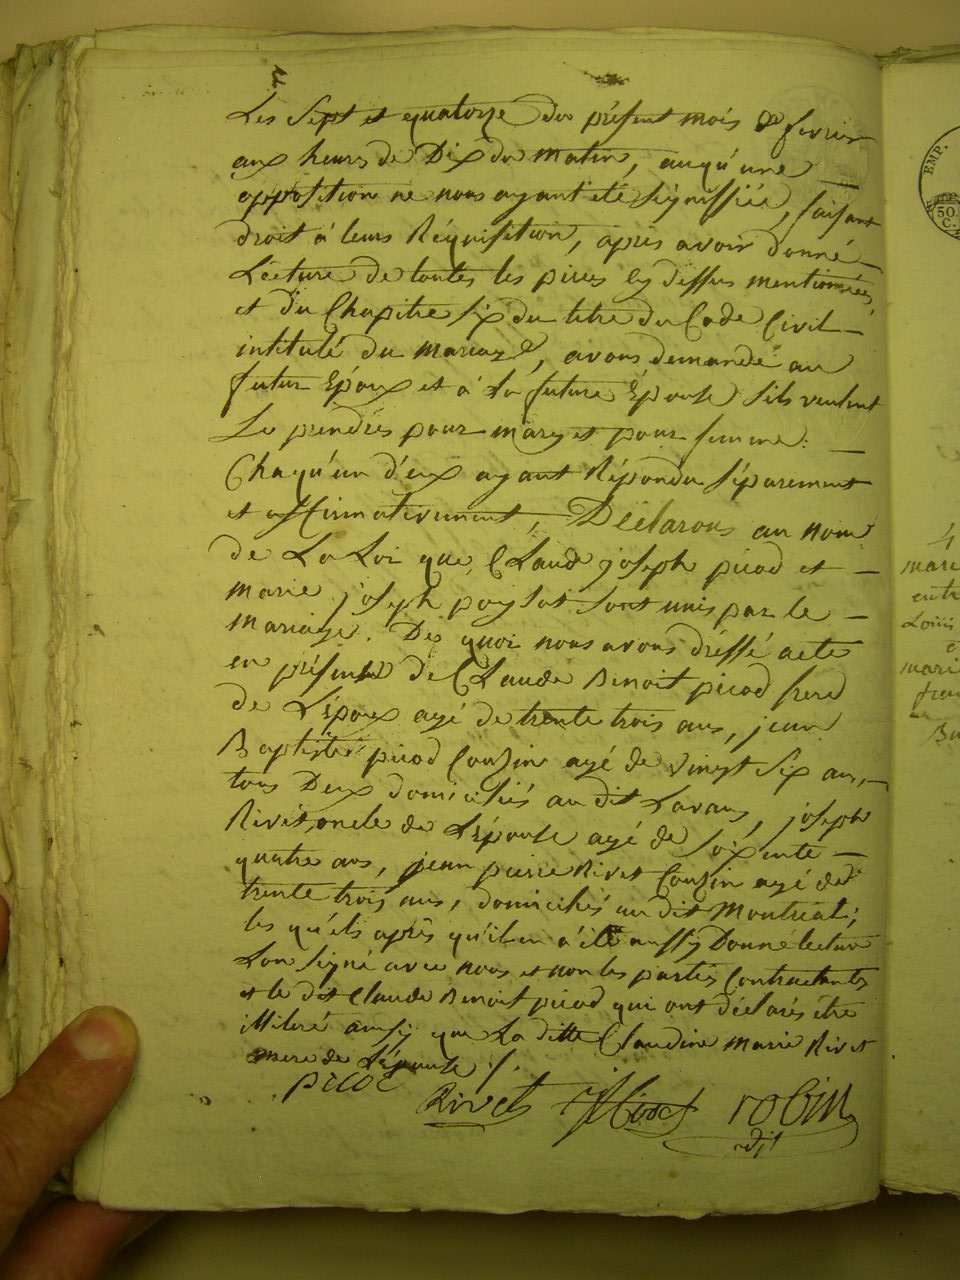 Les Sept et quatorze du présent mois de fevrier
aux heures de Dix du matin, auqu'une
opposition ne nous ayant été signiffiée, faisant
droit à leurs Réquisition, aprés avoir donné
Lecture de toutes les pieces cy dessus mentionnées,
et du Chapitre six du titre du Code Civil
intitulé du mariage, avons demandé au
futur Epoux et à la future Epouse s'ils veulent
se prendrés pour mary et pour femme :
Chaqu'un d'eux ayant Répondu séparement
et affirmativement, Déclarons au nom
de La Loi que Claude joseph picod et
marie joseph poysat sont unis par le
mariage. De quoi nous avons dréssé acte
en présence de Claude Benoit picod frere
de L'Epoux agé de trente trois ans, jean
Baptiste picod Couzin agé de vingt six ans,
tous Deux domiciliés au dit Lavans, joseph
Rivet oncle de L'épouse agé de soixente
quatre ans, jean pierre Rivet Couzin agé de
trente trois ans, domiciliés au dit Montreal ;
les qu'éls aprês qu'il en a été aussy Donné lecture
L'on signé avec nous et non les parties Contractantes
et le dit Claude Benoit picod qui ont déclarés être
illiteré ainsy que La ditte Claudine marie Rivet
mere de L'épouse /.
picod
Rivet robin
EMP.
50.
C.
mari
entre
Louis
e
mari
fran
Bu